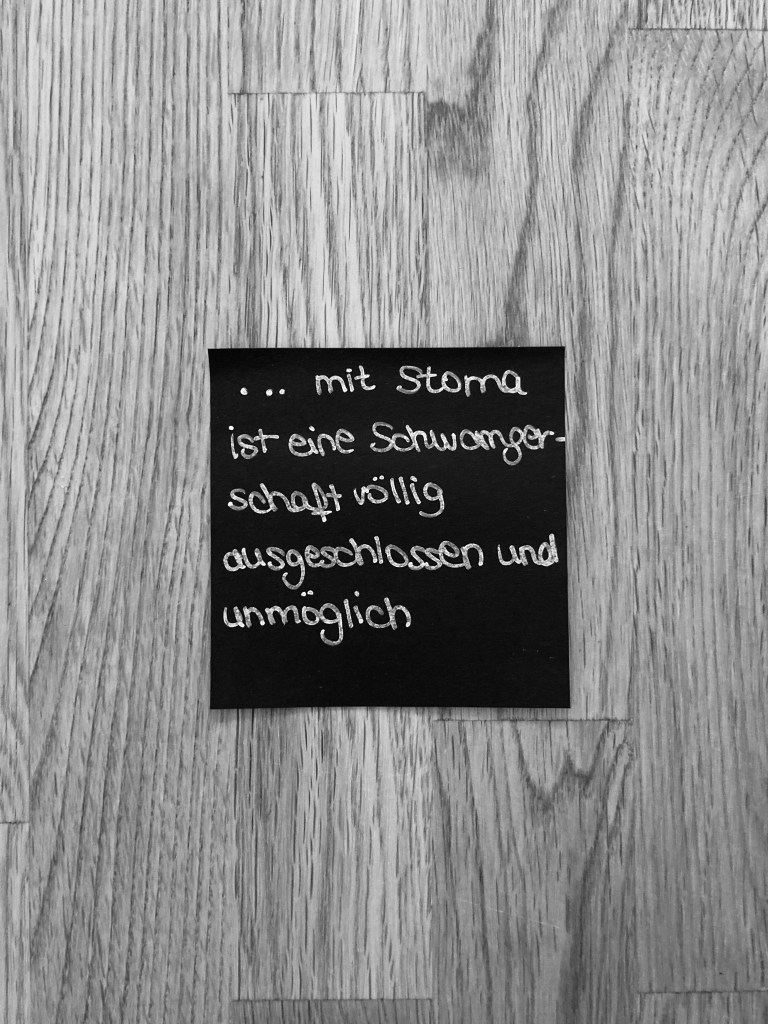 ... mit Stoma
ist eine Schwanger-
schaft völlig
ausgeschlossen und
unmöglich